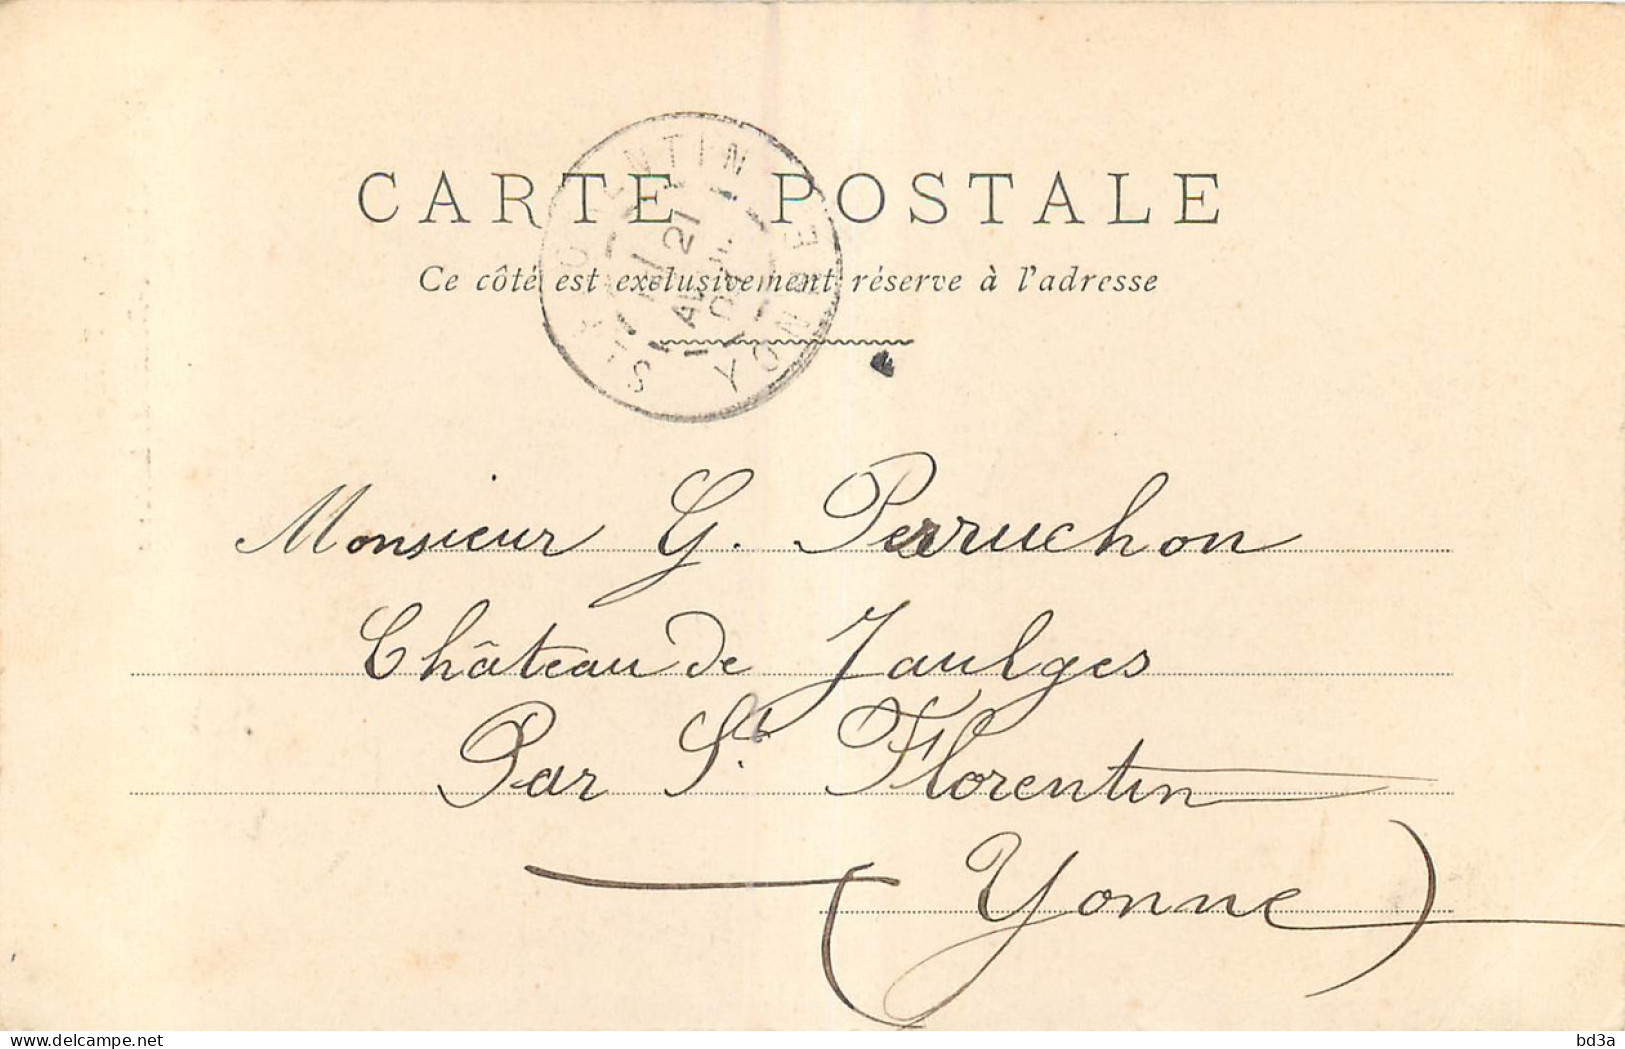 CARTE POSTALE
Ce côté est exclusivement réserve à l'adresse
ST FLORENTIN
21
YONNE
Monsieur G. Perruchon
Château de Jaulges
Par St. Florentin
(Yonne)
delcampe.net
bd3a